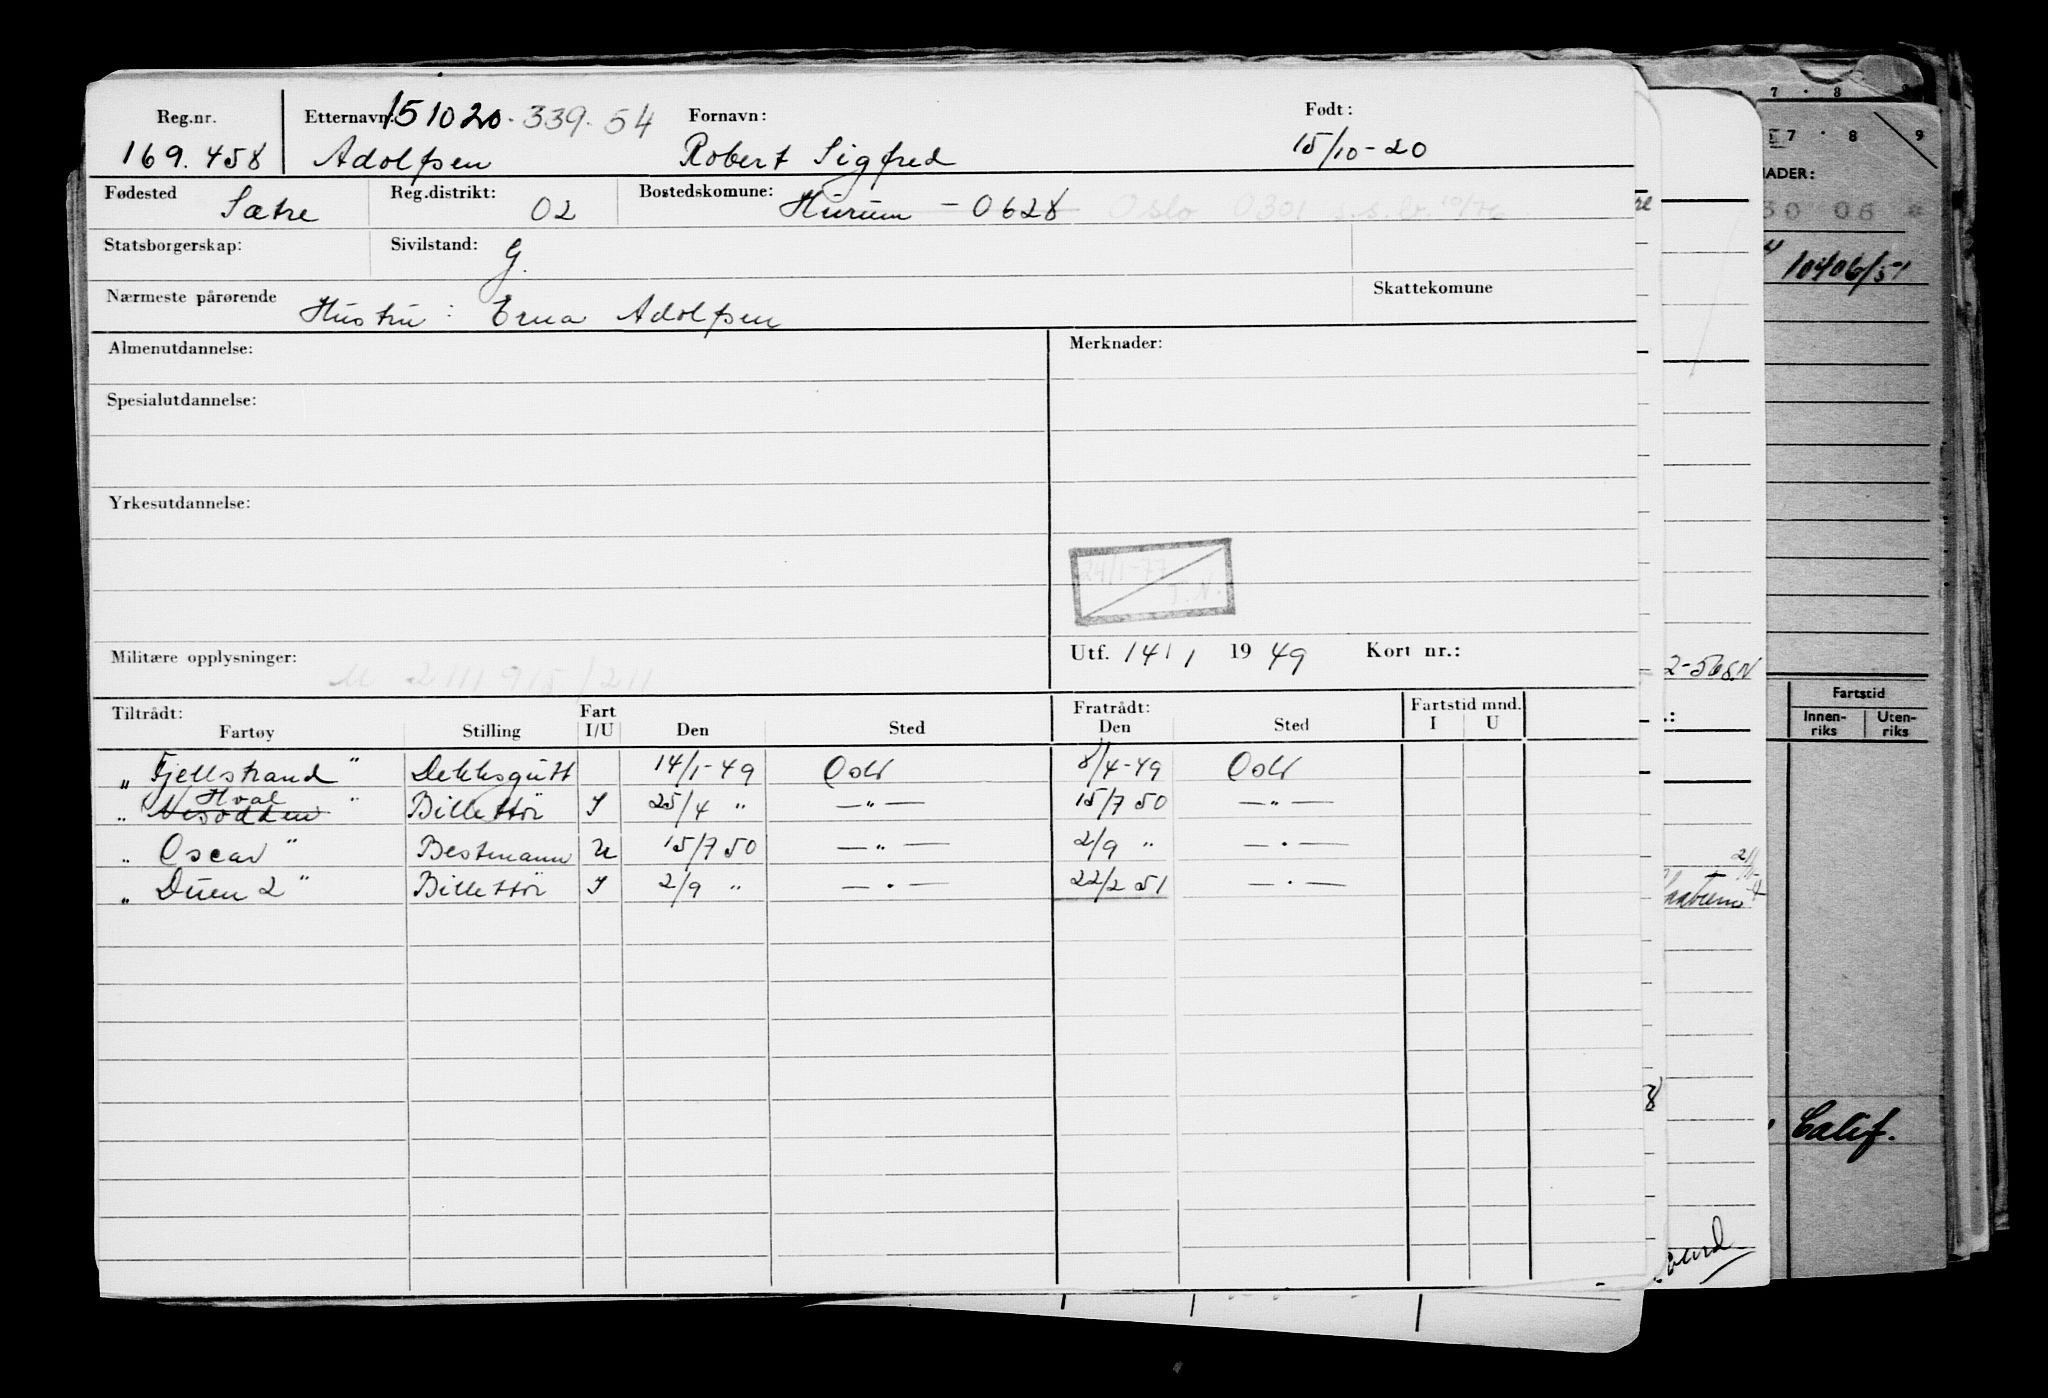 Reg.nr. Etternavn: 151020. 339. 54 Fornavn: Født:
169.458 Adolfsen Robert Sigfred 15/10-20
Fødested Sætre Reg.distrikt: 02 Bostedskomune: Hurum - 0628 Oslo 0301 s.s.br. 10/76
Statsborgerskap: Sivilstand: G.
Nærmeste pårørende Hustru: Erna Adolfsen Skattekomune
Almenutdannelse: Merknader:
Spesialutdannelse:
Yrkesutdannelse:
24/1-77
T.N.
Militære opplysninger: M 2111915/211 Utf. 14/1 1949 Kort nr.:
Tiltrådt: Fart Fratrådt: Fartstid mnd.
Fartøy Stilling I/U Den Sted Den Sted I U
„ Fjellstrand " Dekksgutt 14/1-49 Oslo 8/4-49 Oslo
Hval
„ Nesodden " Billettör I 25/4 " —"— 15/7 50 —"—
„ Oscar " Bestmann U 15/7 50 —"— 2/9 " —"—
„ Duen 2 " Billettör I 2/9 " —"— 22/2 51 —"—
7 · 8
7 · 8 9
NADER:
30 06
10406/51
2-568.N
Fartstid
Innen-
riks
Uten-
riks
8
Calif.